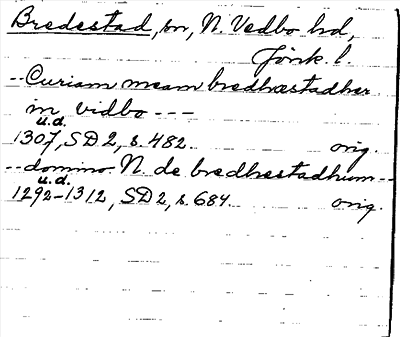 Bredestad, sn, N. Vedbo hd,
Jönk. l.
-- Curiam meam bredhæstadher
in vidbo ---
u.d.
1307, SD 2, s. 482. orig.
-- domino N. de bredhestadhum --
u.d.
1292-1312, SD 2, s. 684. orig.